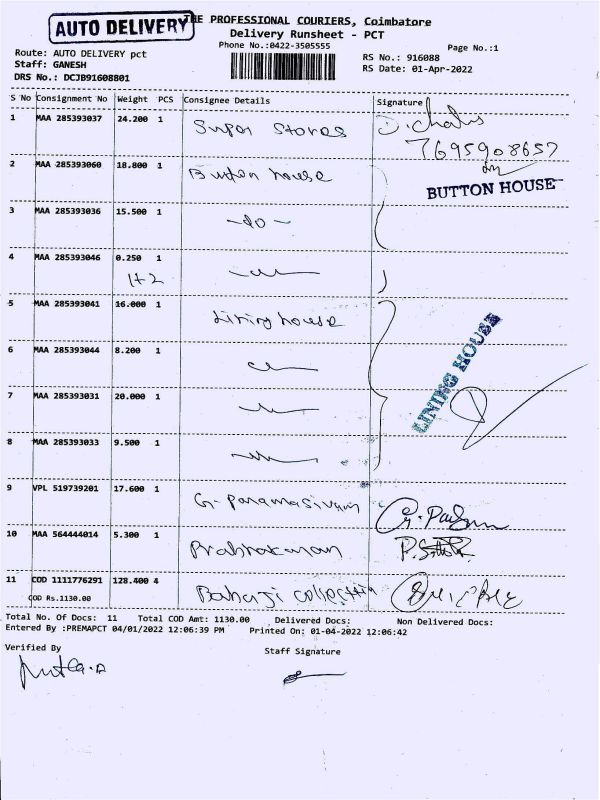 AUTO DELIVERY
THE PROFESSIONAL COURIERS, Coimbatore
Delivery Runsheet - PCT
Phone No.:0422-3505555
Page No.:1
Route: AUTO DELIVERY pct
Staff: GANESH
DRS No.: DCJB91608801
RS No.: 916088
RS Date: 01-Apr-2022
S No Consignment No Weight PCS Consignee Details Signature
1 MAA 285393037 24.200 1 Super Stores
7695908657
2 MAA 285393060 18.800 1 Button house
BUTTON HOUSE
3 MAA 285393036 15.500 1 -do-
4 MAA 285393046 0.250 1
1+2
5 MAA 285393041 16.000 1 Lining house
LINING HOUSE
6 MAA 285393044 8.200 1
7 MAA 285393031 20.000 1
8 MAA 285393033 9.500 1
9 VPL 519739201 17.600 1 G. Paramasivam
10 MAA 564444014 5.300 1 Prabhakaran
11 COD 1111776291 128.400 4 collection
COD Rs.1130.00
Total No. Of Docs: 11 Total COD Amt: 1130.00 Delivered Docs: Non Delivered Docs:
Entered By :PREMAPCT 04/01/2022 12:06:39 PM Printed On: 01-04-2022 12:06:42
Verified By
Staff Signature